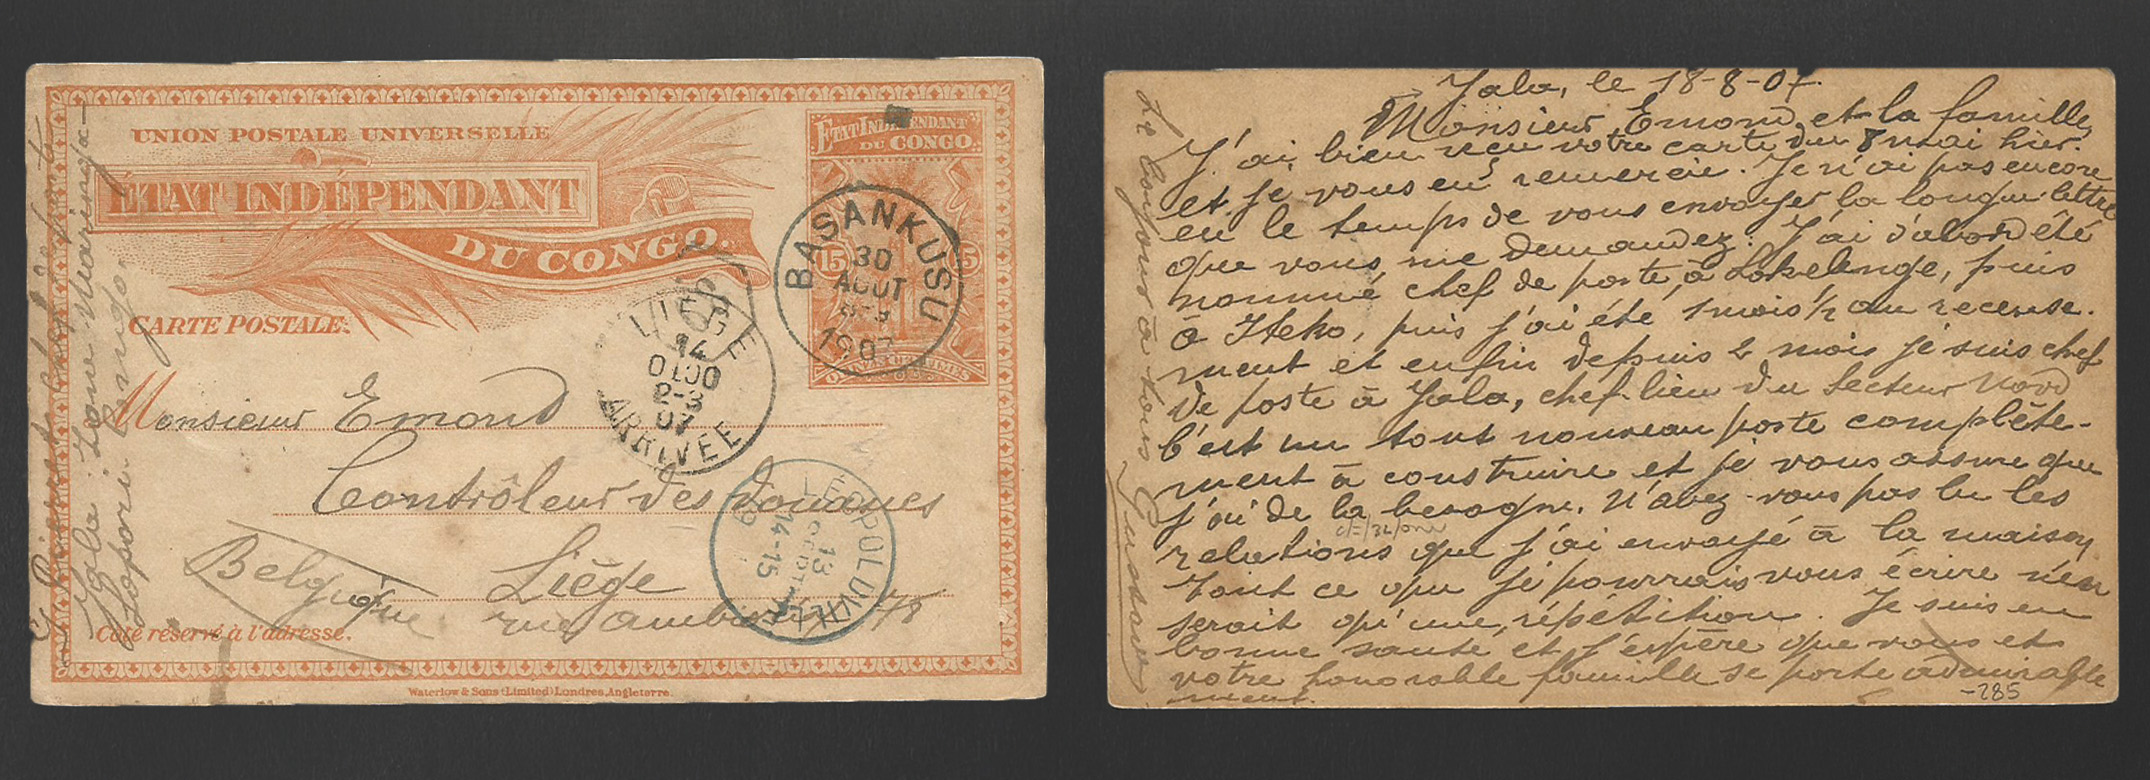 UNION POSTALE UNIVERSELLE
ÉTAT INDÉPENDANT
DU CONGO.
CARTE POSTALE.
ÉTAT INDÉPENDANT
DU CONGO.
15 15
QUINZE CENTIMES
BASANKUSU
30
AOUT
1907
LIEGE
14
OLOO
2-3
07
ARRIVEE
LEOPOLDVILLE
13
SEPT
14-15
Monsieur Emond
Contrôleur des douanes
Liège
rue
Belgique
Côté réservé à l'adresse.
Waterlow & Sons (Limited) Londres, Angleterre.
chef de poste
Yala: Zone Maringa-
Lopori. Congo
Yala, le 18-8-07.
Monsieur Emond et la famille,
J'ai bien reçu votre carte du 8 mai hier.
et je vous en remercie. Je n'ai pas encore
eu le temps de vous envoyer la longue lettre
que vous me demandez. J'ai d'abord été
nommé chef de poste à Lokelenge, puis
à Iteko, puis j'ai été 1 mois ½ au recense-
ment et enfin depuis 2 mois je suis chef
de poste à Yala, chef-lieu du Secteur Nord
C'est un tout nouveau poste complète-
ment à construire et je vous assure que
j'ai de la besogne. N'avez-vous pas lu les
relations que j'ai envoyé à la maison
tout ce que je pourrais vous écrire n'en
serait qu'une répétition. Je suis en
bonne santé et j'espère que vous et
votre honorable famille se porte admirable
ment.
-285
Le bonjour à tous